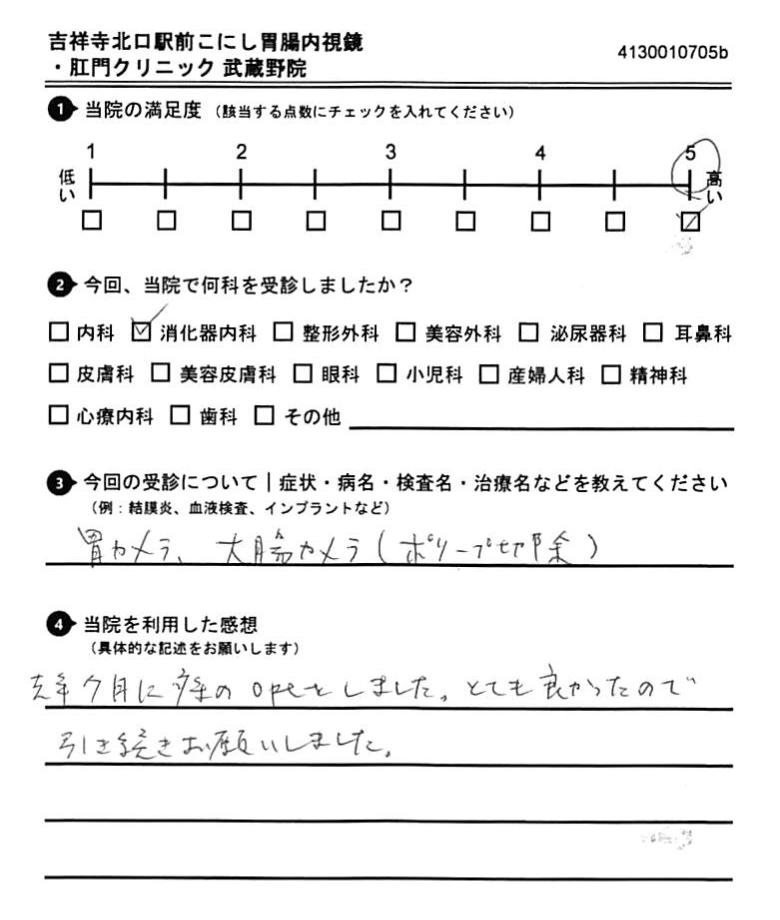 吉祥寺北口駅前こにし胃腸内視鏡
・肛門クリニック 武蔵野院
4130010705b
1 当院の満足度 （該当する点数にチェックを入れてください）
1 2 3 4 5
低い 高い
2 今回、当院で何科を受診しましたか？
□ 内科 ☑ 消化器内科 □ 整形外科 □ 美容外科 □ 泌尿器科 □ 耳鼻科
□ 皮膚科 □ 美容皮膚科 □ 眼科 □ 小児科 □ 産婦人科 □ 精神科
□ 心療内科 □ 歯科 □ その他
3 今回の受診について｜症状・病名・検査名・治療名などを教えてください
（例：結膜炎、血液検査、インプラントなど）
胃カメラ、大腸カメラ（ポリープ切除）
4 当院を利用した感想
（具体的な記述をお願いします）
去年 月に の opeをしました。とても良かったので
引き続きお願いしました。